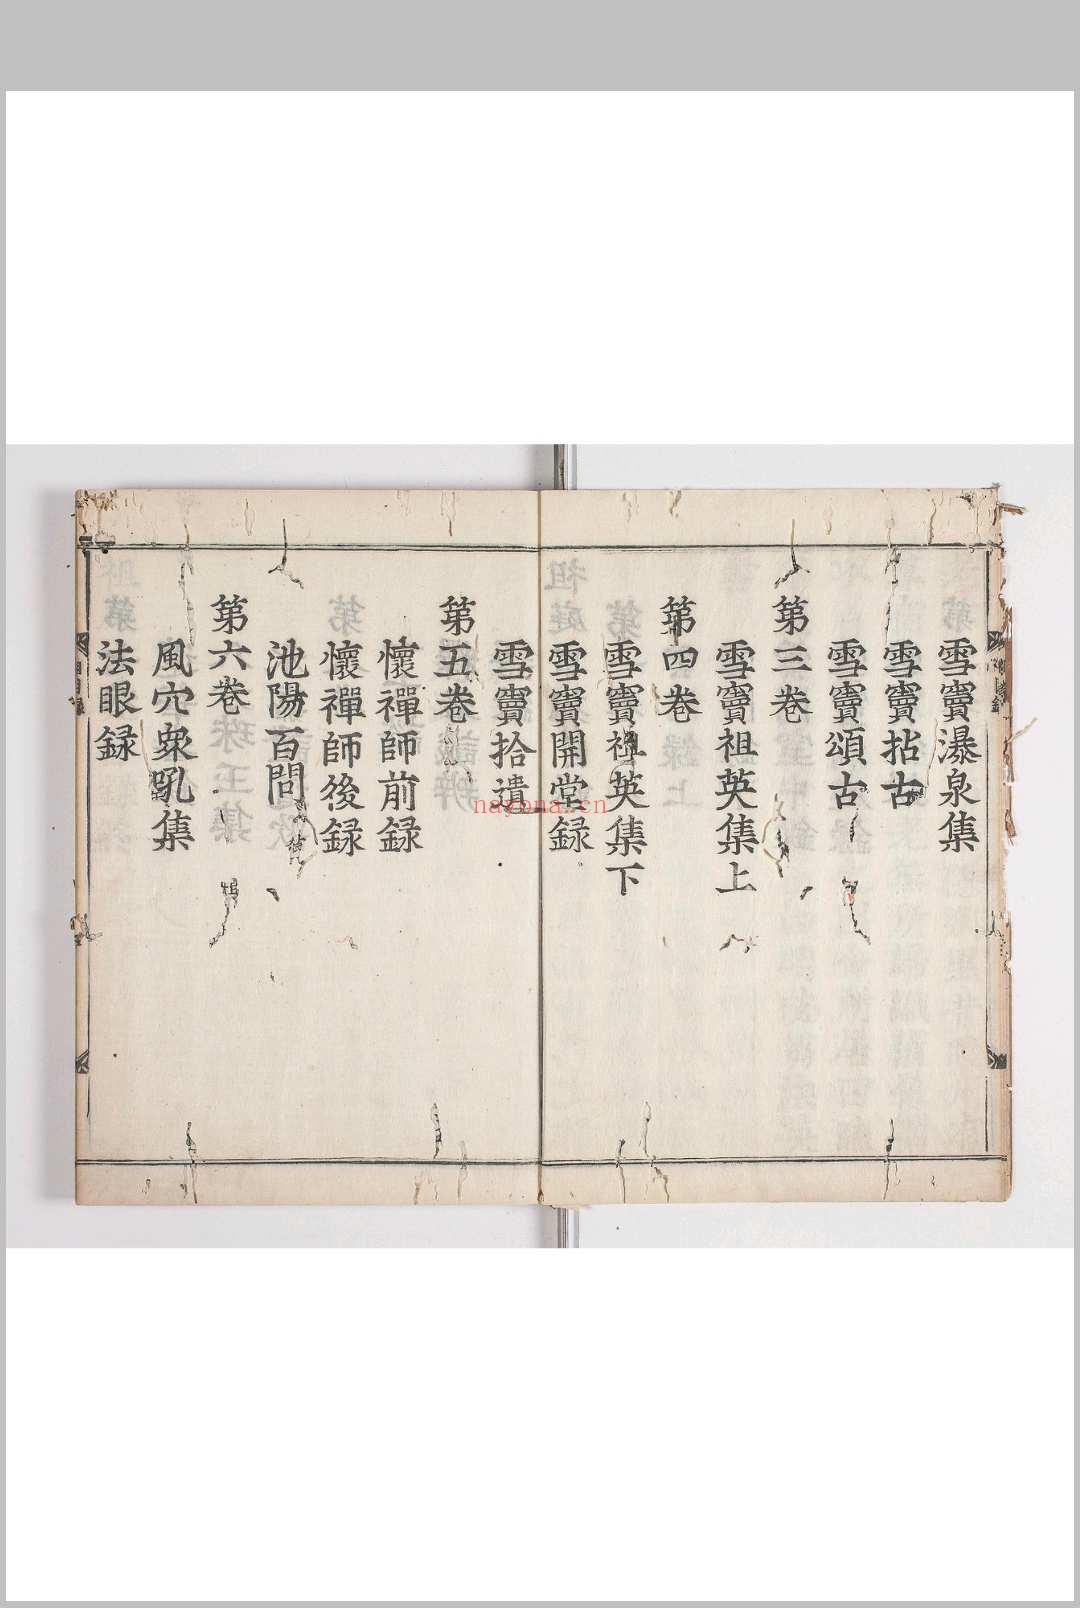 雪竇瀑泉集
雪竇拈古
雪竇頌古
第三卷
雪竇祖英集上
第四卷
雪竇祖英集下
雪竇開堂録
雪竇拾遺
第五卷
懷禪師前録
懷禪師後録
池陽百問
第六卷
風穴衆吼集
法眼録
nayona.cn